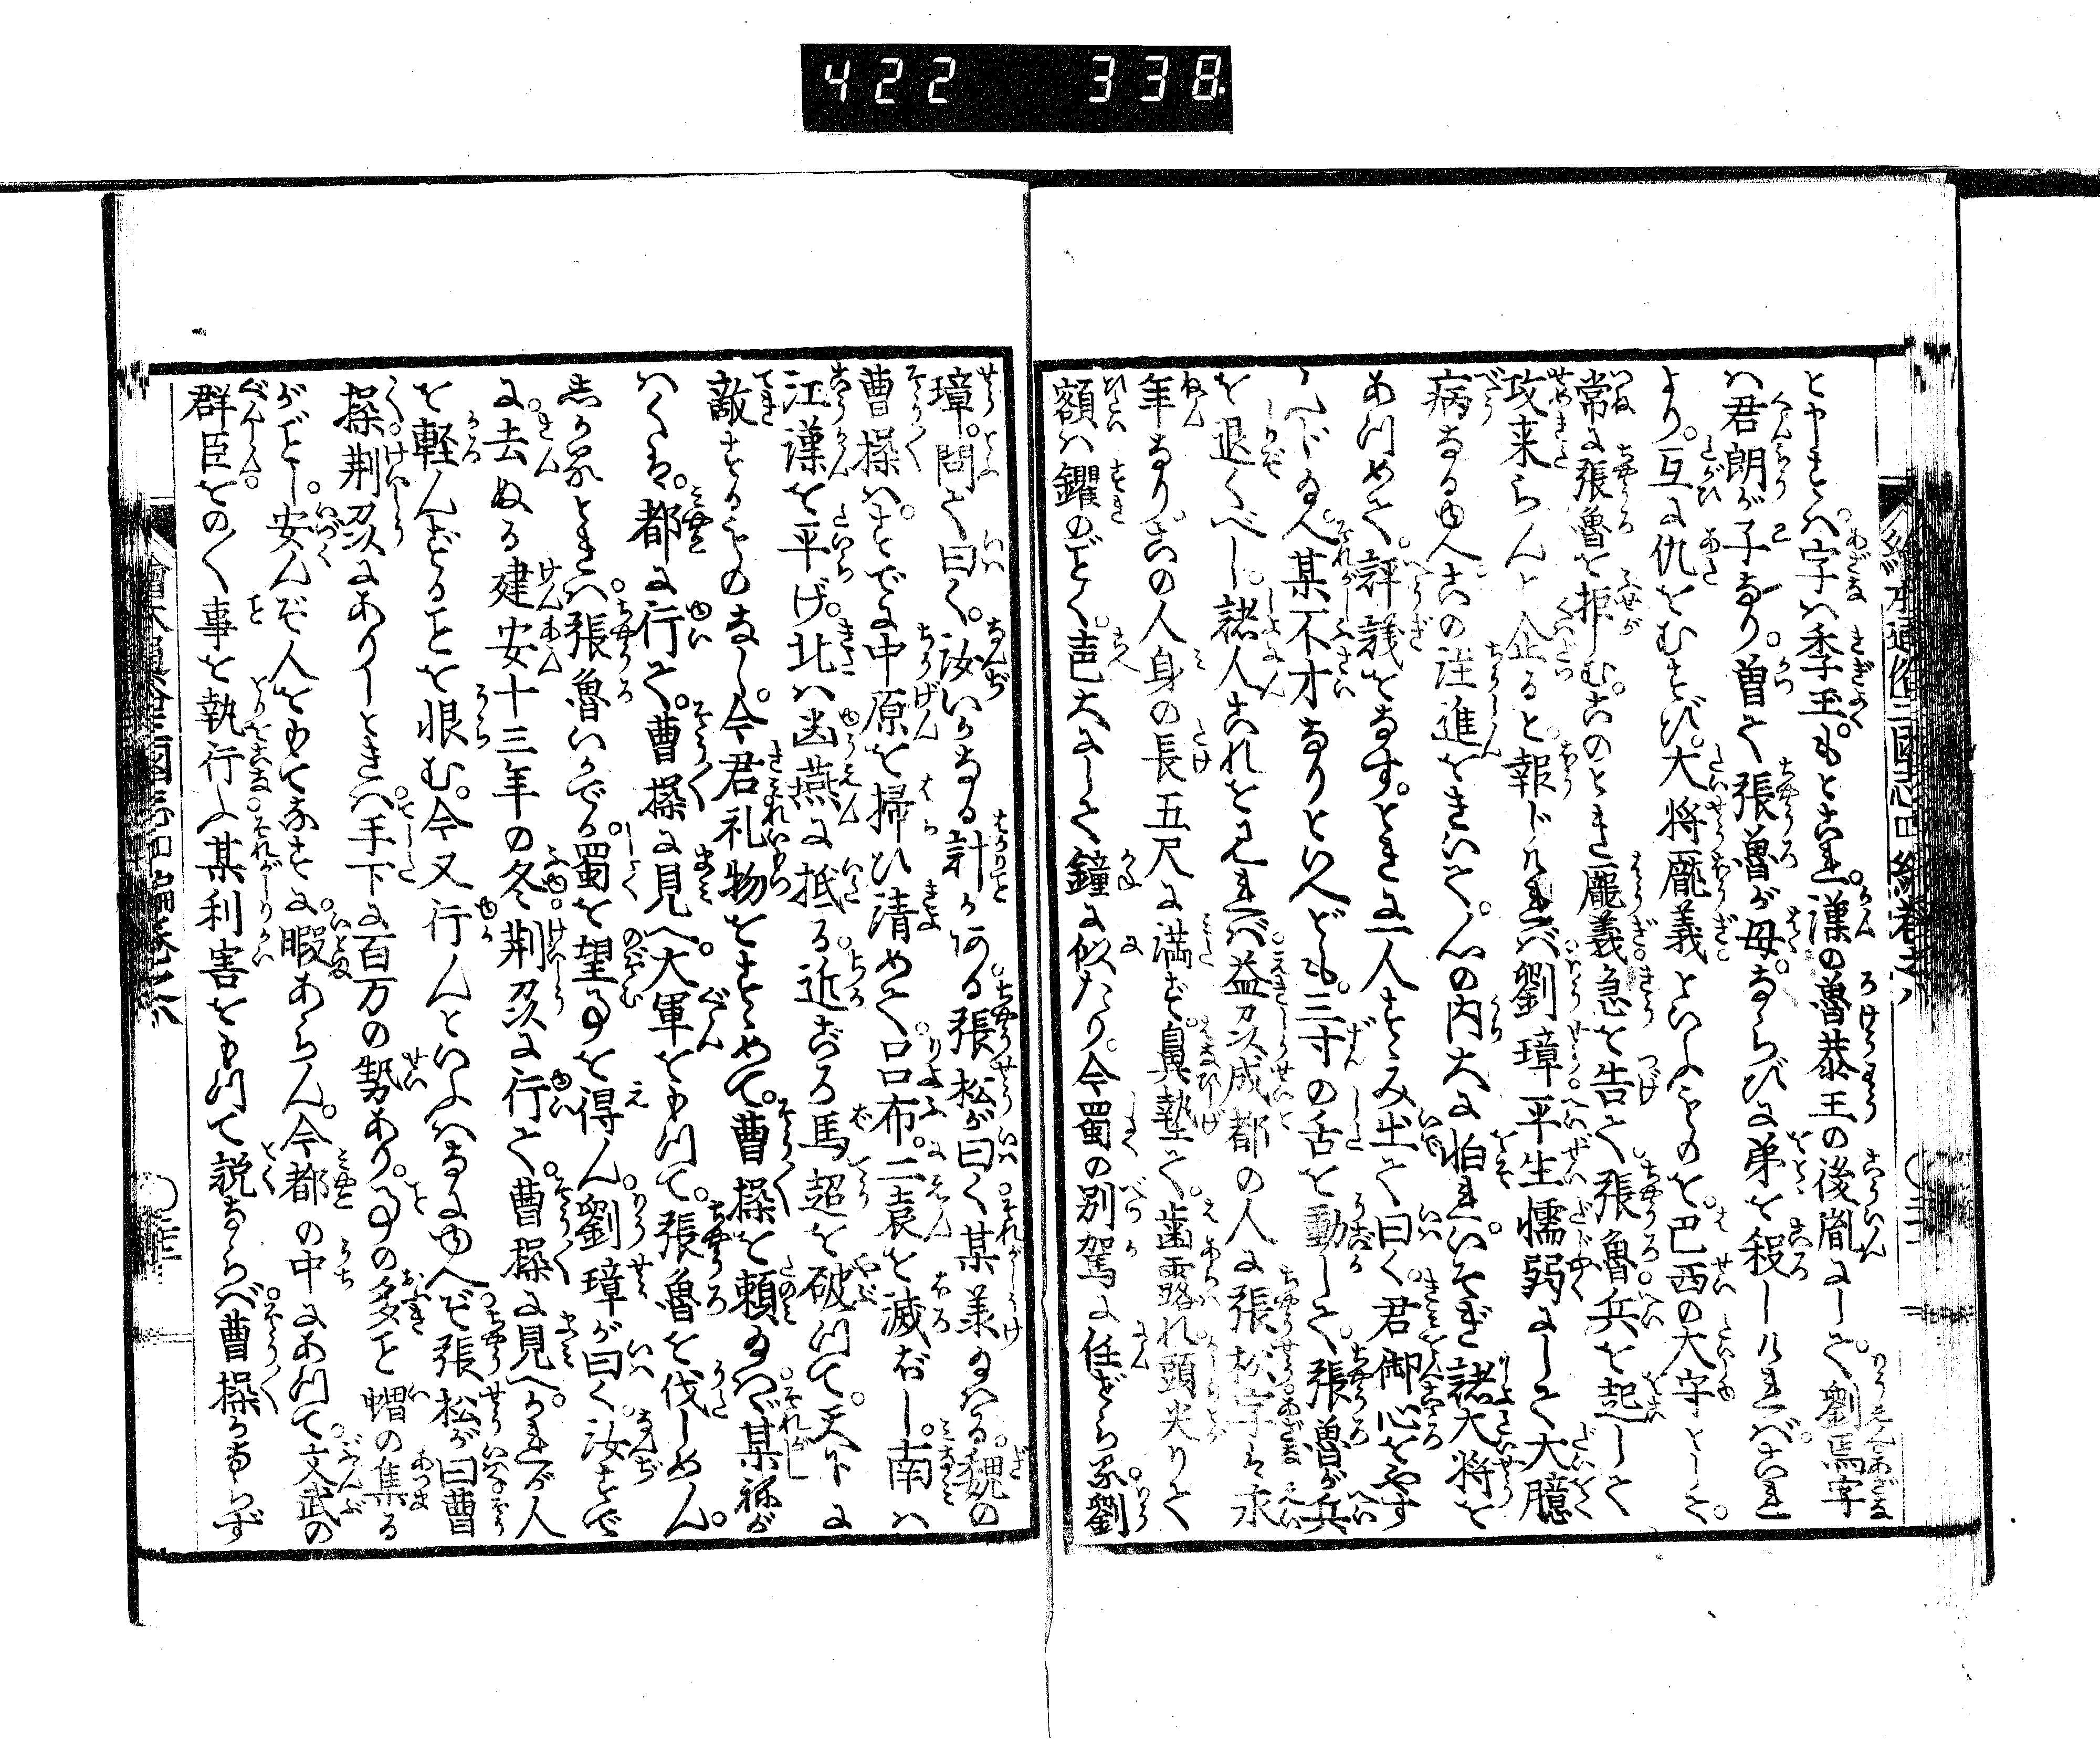 422 338
とやらん。字は季玉。もとこれ漢の魯恭王の後胤にして。劉焉字
は君朗が子なり。曽て張魯が母。ならびに弟を殺しければ。これ
より。互に仇をむすび。大将龐義といふものを。巴西の大守として。
常に張魯を拒む。このとき龐義急を告て張魯兵を起して
攻来らんと企ると。報じければ劉璋平生懦弱にして大臆
病なるゆへ。この注進をきいて。心の内大に怕れ。いそぎ諸大将を
あつめて。評議をなす。ときに一人すゝみ出て曰く。君御心をやす
んじ給へ。某不才なりといへども。三寸の舌を動して。張魯が兵
を退くべし。諸人これを見れば。益州成都の人に張松字は永
年なり。この人身の長五尺に満ず。鼻塾て。歯露れ。頭尖りて
額は钁のごとく。声大にして鐘に似たり。今蜀の別駕に任ぜらる。劉
璋。問て曰く。汝いかなる計かある。張松が曰く某承け給はる。魏の
曹操は。すでに中原を掃ひ清めて。呂布。二袁を滅ぼし。南は
江漢を平げ。北は幽燕に抵る。近ごろ馬超を破つて。天下に
敵するものなし。今君礼物をすゝめて。曹操を頼み給はゞ。某祢が
はくは。都に行て。曹操に見へ。大軍をもつて。張魯を伐しめん。
しかるときは。張魯いかでか。蜀を望む事を得ん。劉璋が曰く。汝すで
に去ぬる建安十三年の冬。荆州に行て。曹操に見へられしが。人
を軽んずることを恨む。今又行んといふはなにゆへぞ。張松が曰曹
操荆州にありしときは。手下に百万の勢あり。事の多こと蝟の集る
がごとし。安んぞ人をもてなすに。暇あらん。今都の中にあつて。文武の
群臣をのく事を執行ふ。某利害をもつて説ならば。曹操かならず